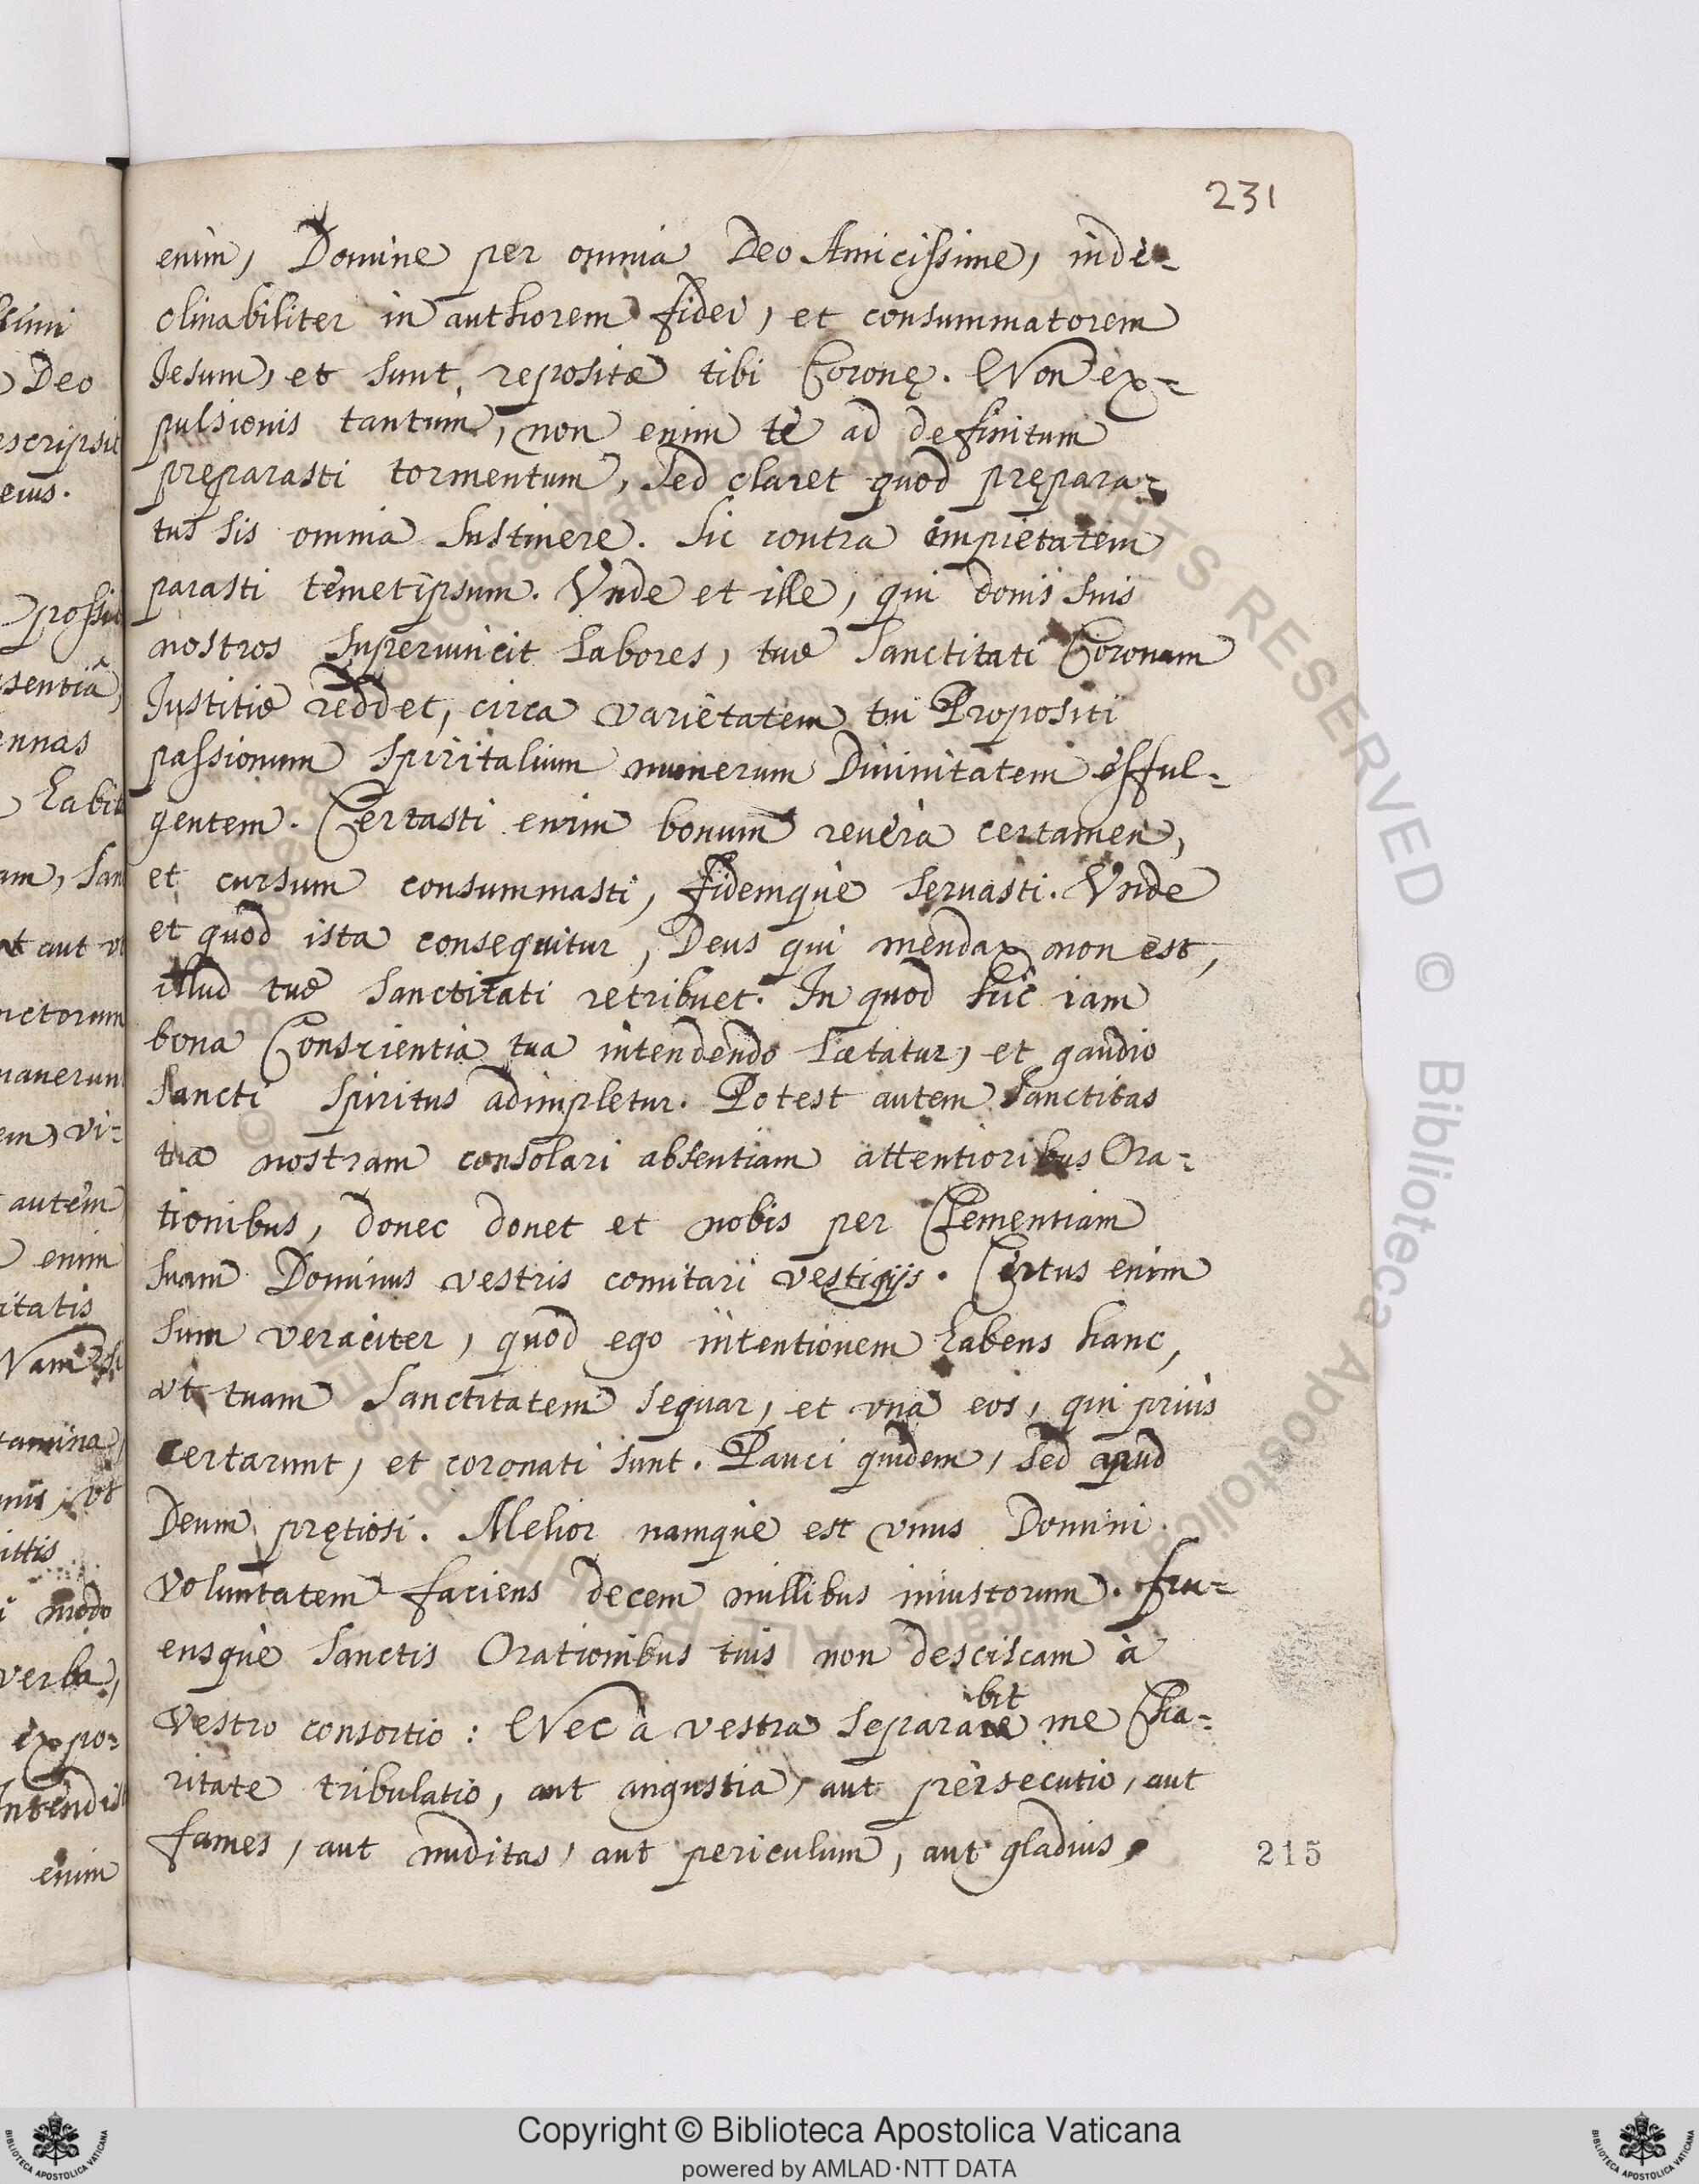 231
enim, Domine per omnia Deo Amicissime, inde-
clinabiliter in authorem fidei, et consummatorem
Iesum, et sunt repositæ tibi Coronę. Non ex-
pulsionis tantum, non enim te ad definitum
pręparasti tormentum, sed claret quod prępara-
tus sis omnia sustinere. Sic contra impietatem
parasti temetipsum. Vnde et ille, qui donis suis
nostros superuincit labores, tuæ Sanctitati Coronam
Iustitiæ reddet, circa varietatem tui Propositi
passionum spiritalium munerum Diuinitatem efful-
gentem. Certasti enim bonum reuera certamen,
et cursum consummasti, fidemque seruasti. Vnde
et quod ista consequitur, Deus qui mendax non est,
illud tuæ Sanctitati retribuet. In quod hic iam
bona Conscientia tua intendendo lætatur, et gaudio
Sancti Spiritus adimpletur. Potest autem Sanctitas
tua nostram consolari absentiam attentioribus Ora-
tionibus, donec donet et nobis per Clementiam
suam Dominus vestris comitari vestigijs. Certus enim
sum veraciter, quod ego intentionem habens hanc,
vt tuam Sanctitatem sequar, et vna eos, qui prius
certarunt, et coronati sunt. Pauci quidem, sed apud
Deum prętiosi. Melior namque est vnus Domini
voluntatem faciens decem millibus iniustorum. fru-
ensque Sanctis Orationibus tuis non desciscam à
vestro consortio: Nec à vestra separabit me Cha-
ritate tribulatio, aut angustia, aut persecutio, aut
fames, aut nuditas, aut periculum, aut gladius,
215
Copyright © Biblioteca Apostolica Vaticana
powered by AMLAD·NTT DATA